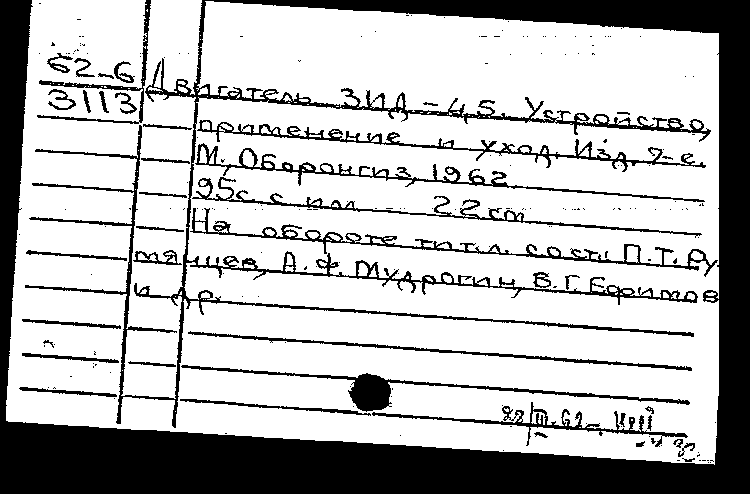 62-6
3113
Двигатель ЗИД-4,5. Устройство,
применение и уход. Изд. 2-е.
М., Оборонгиз, 1962
95с. с илл. 22 cm
На обороте титл. сост.: П.Т. Ру-
мянцев, А.Ф. Мудрогин, В.Г. Ефимов
и др.
28/III.62